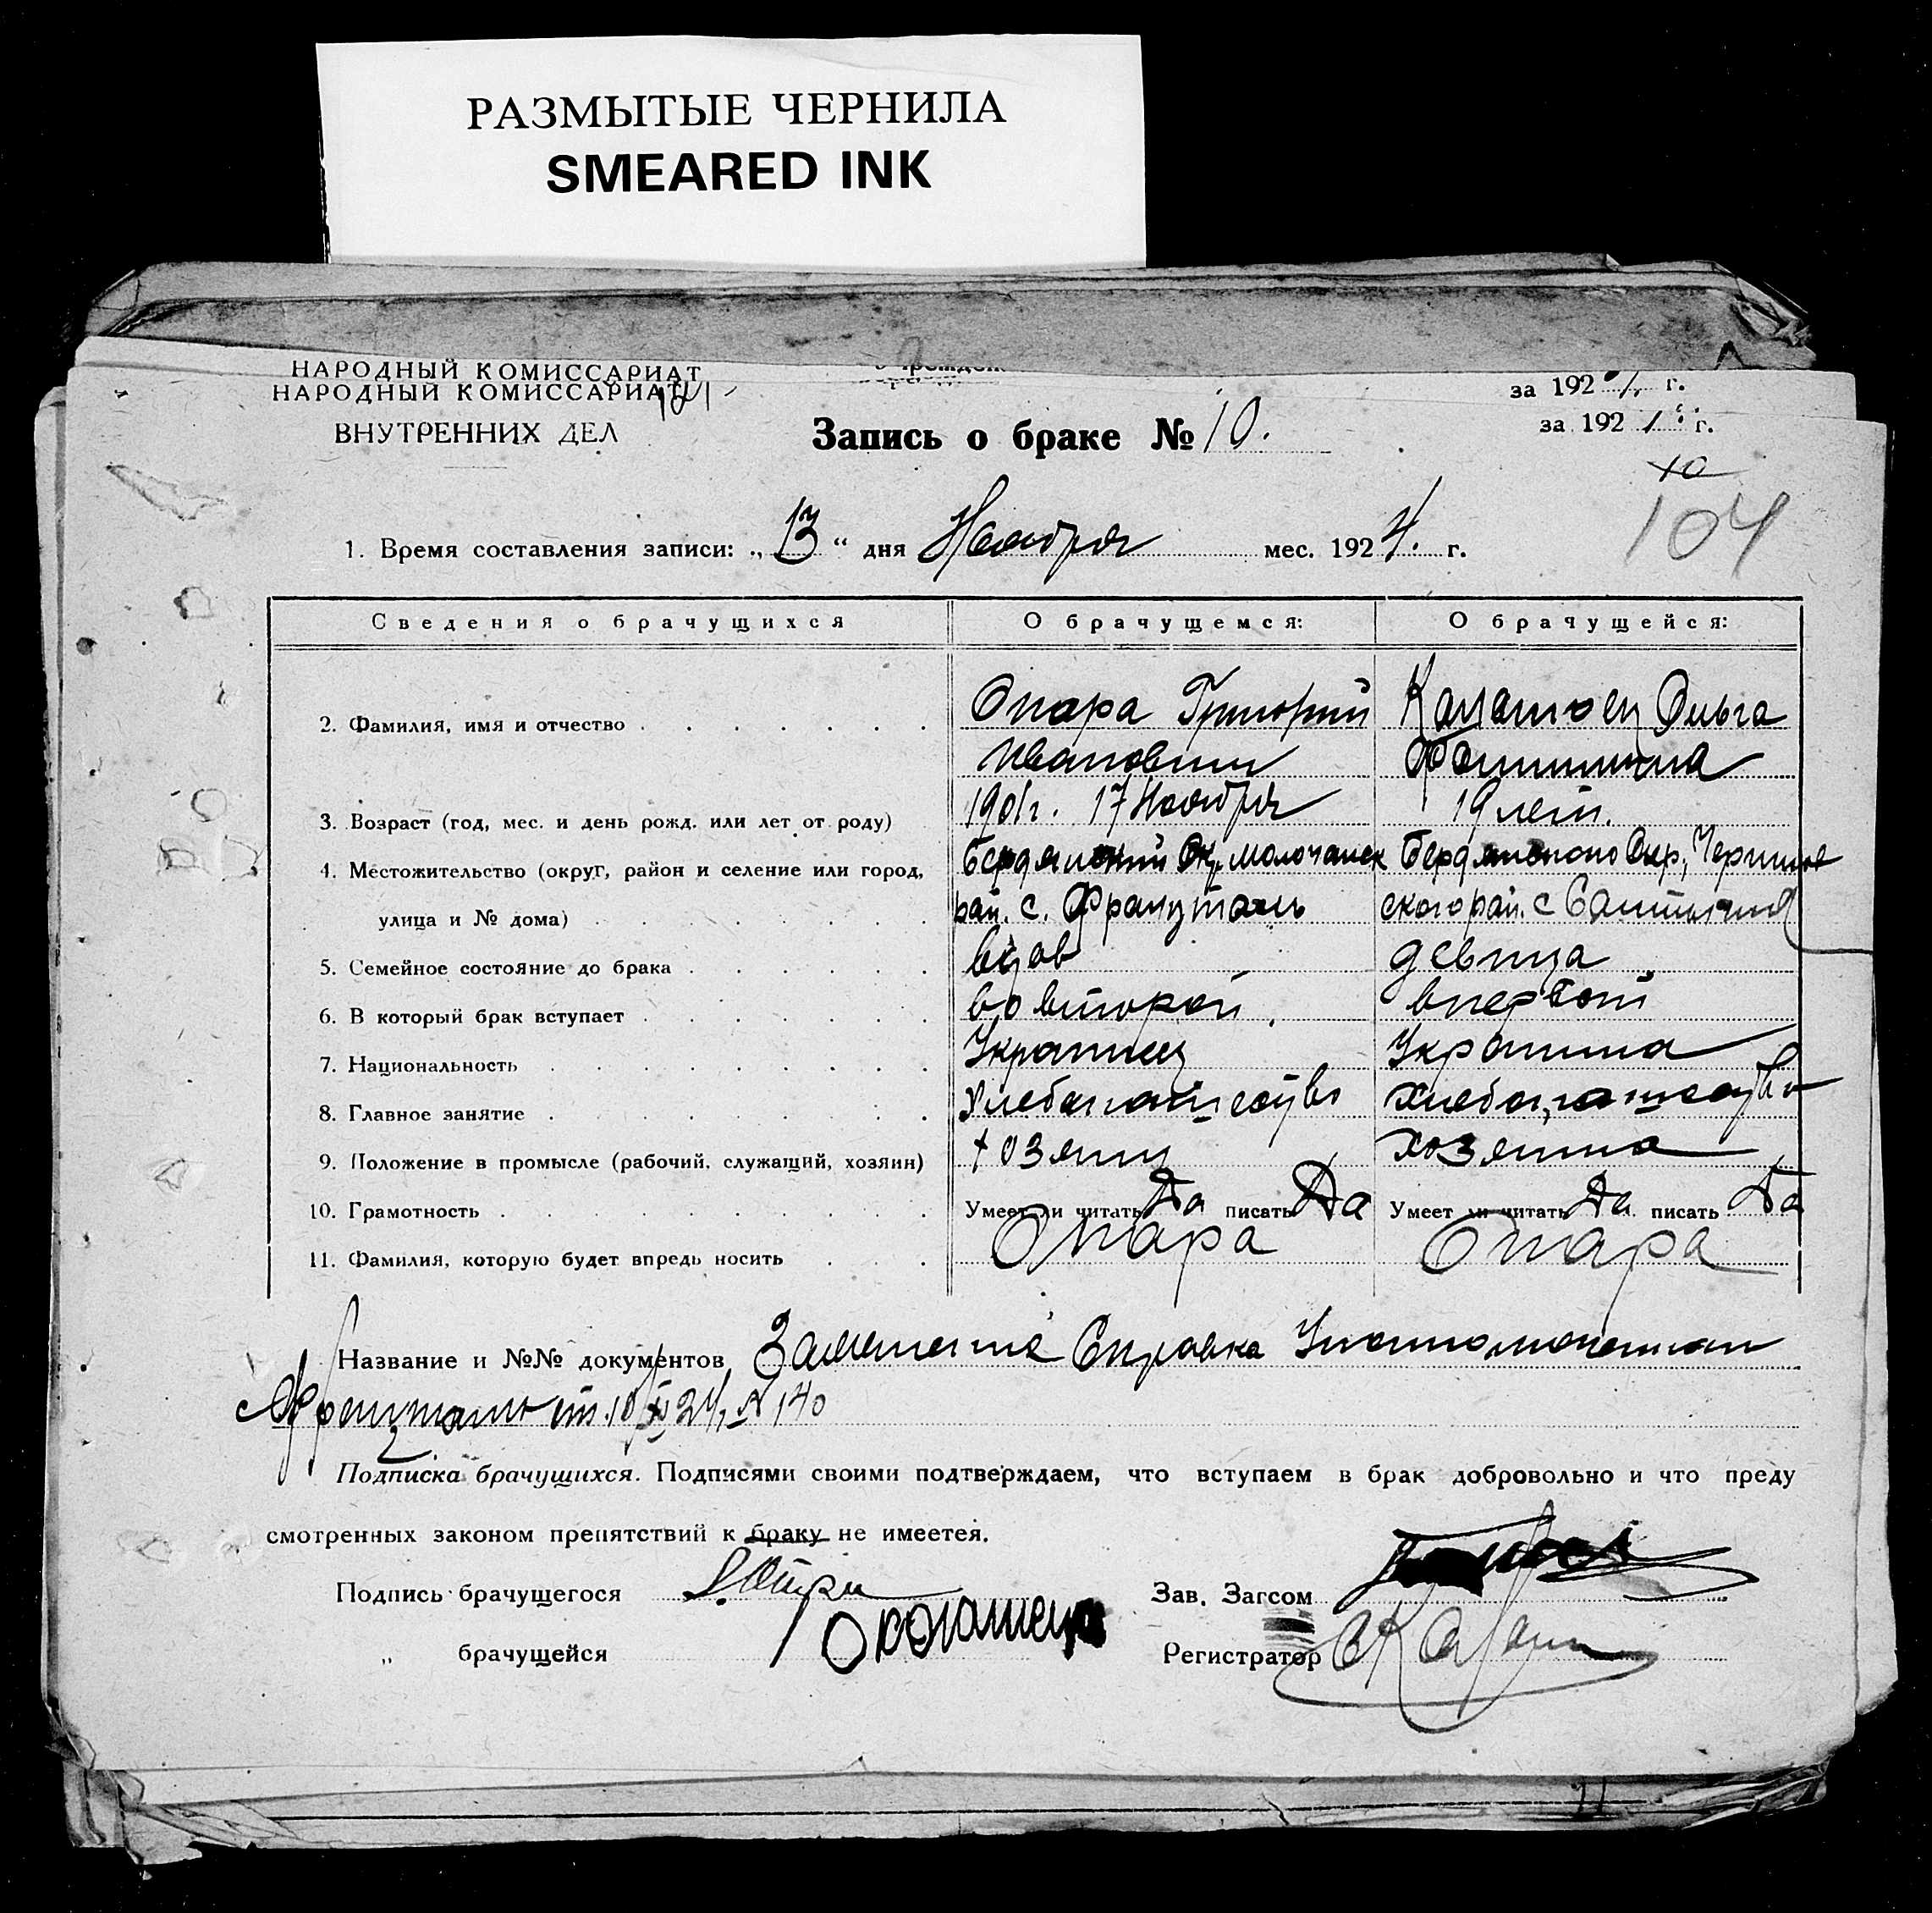 РАЗМЫТЫЕ ЧЕРНИЛА
SMEARED INK
НАРОДНЫЙ КОМИССАРИАТ
за 192 г.
НАРОДНЫЙ КОМИССАРИАТ
ВНУТРЕННИХ ДЕЛ
Запись о браке № 10.
за 192 г.
10
104
1. Время составления записи: „13“ дня Ноября мес. 1924. г.
Сведения о брачущихся О брачущемся: О брачущейся:
2. Фамилия, имя и отчество Опара Григорий Ольга
Иванович
3. Возраст (год, мес. и день рожд. или лет от роду) 1901г. 17 Ноября 19 лет.
4. Местожительство (округ, район и селение или город, Бердянский Окр. Молочанск Бердянского Окр.,
улица и № дома) рай. с. Францталь ского рай. с
5. Семейное состояние до брака вдов девица
6. В который брак вступает во второй впервой
7. Национальность Украинец
8. Главное занятие Хлебопашество хлебопашество
9. Положение в промысле (рабочий, служащий, хозяин) хозяин
10. Грамотность Умеет ли читать Да писать Да Умеет ли читать Да писать Да
11. Фамилия, которую будет впредь носить Опара Опара
Название и №№ документов Справка
с Францталь от 10/XI 24, № 140
Подписка брачущихся. Подписями своими подтверждаем, что вступаем в брак добровольно и что преду
смотренных законом препятствий к браку не имеется.
Подпись брачущегося Зав. Загсом
„ брачущейся Регистратор